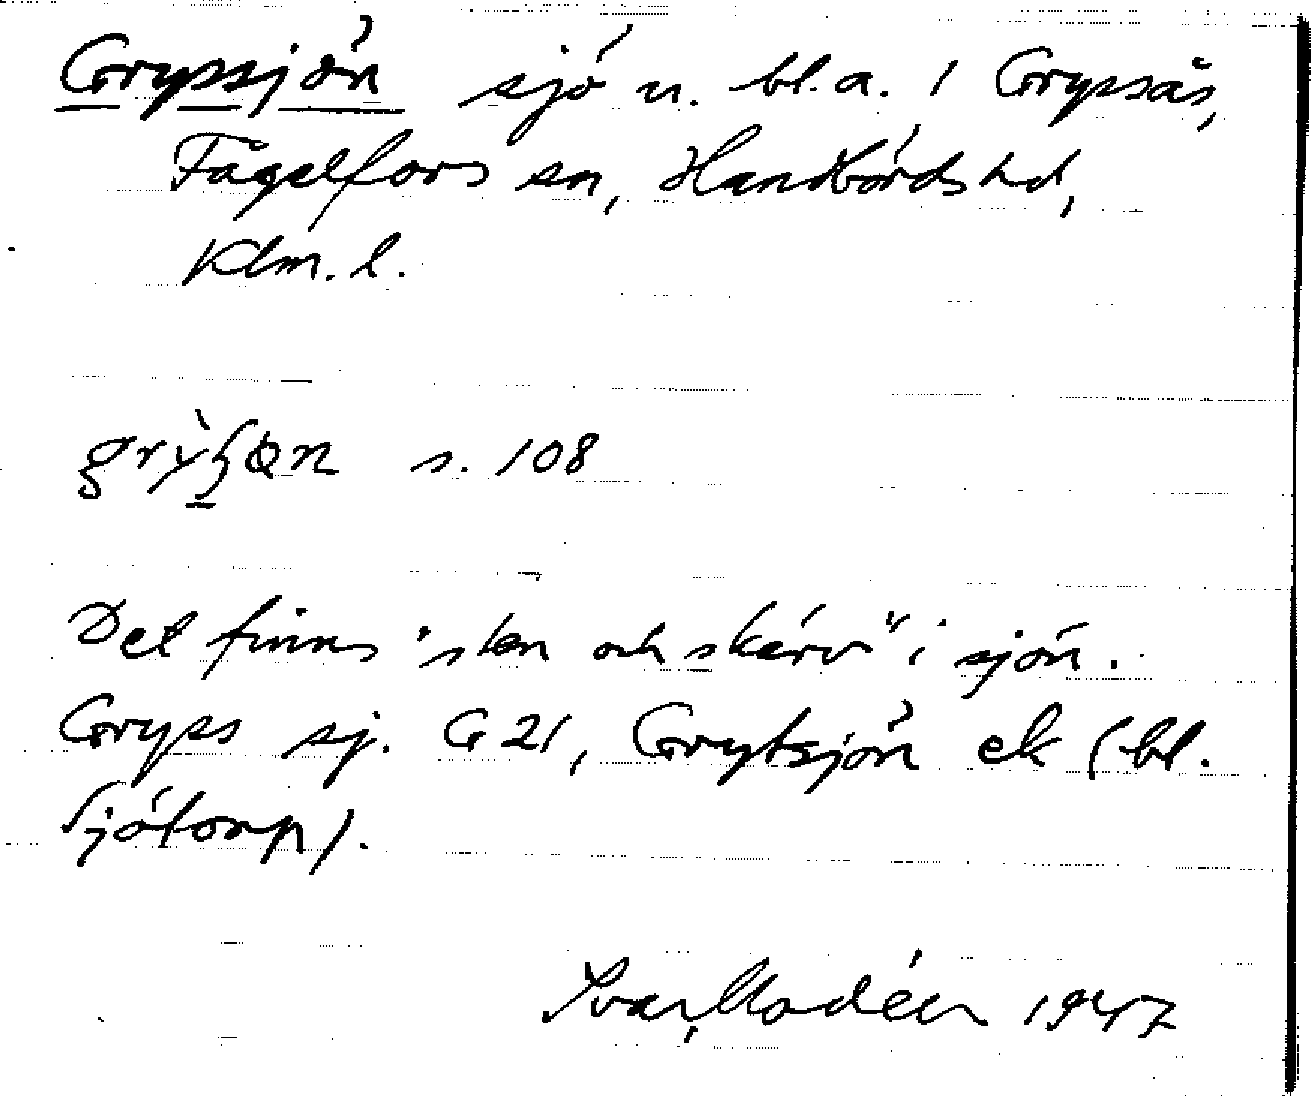 Gryssjön sjö n. bl.a. i Gryssås,
Fagelfors sn, Handbörds hd,
Klm. l.
s. 108
Det finns "sten och skärv" i sjön.
Gryss sj. G 21, Grytsjön ek (bl.
Sjötorp).
Ivar Modéer 1947